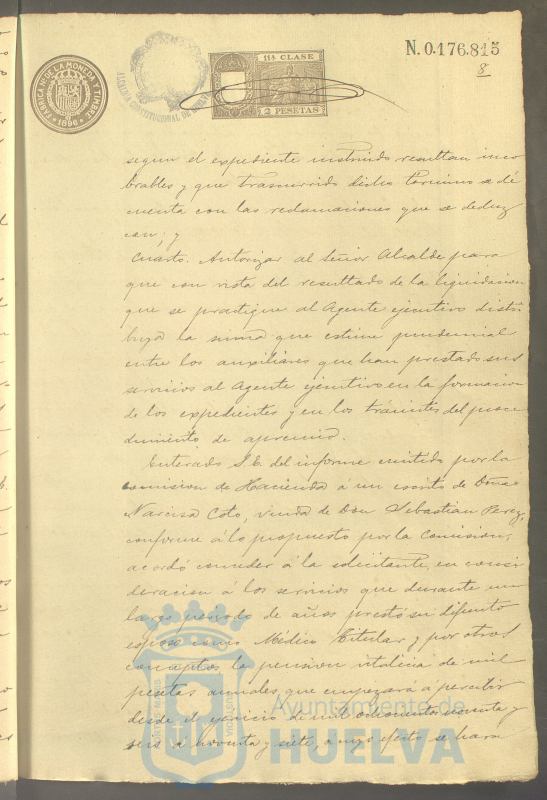 N. 0.176.815
8
FABRICA NAL DE LA MONEDA Y TIMBRE
1896
ALCALDIA CONSTITUCIONAL DE
11ª CLASE
2 PESETAS
segun el expediente instruido resultan inco
brables y que trascurrido dicho termino se dé
cuenta con las reclamaciones que se deduz
can; y
Cuarto. Autorizar al Señor Alcalde para
que con vista del resultado de la liquidacion
que se practique al Agente ejecutivo distri
buya la suma que estime prudencial
entre los auxiliares que han prestado sus
servicios al Agente ejecutivo en la formacion
de los expedientes y en los trámites del proce
dimiento de apremio.
Enterado S.E. del informe emitido por la
comision de Hacienda á un escrito de Doña
Narcisa Coto, viuda de Don Sebastian Perez,
conforme á lo propuesto por la Comision,
acordó conceder á la solicitante, en consi
deracion á los servicios que durante un
largo periodo de años prestó su difunto
esposo como Médico Titular y por otros
conceptos la pension vitalicia de mil
pesetas anuales, que empezará á percibir
desde el ejercicio de mil ochocientos noventa y
seis á noventa y siete, a cuyo efecto se hará
Ayuntamiento de
HUELVA